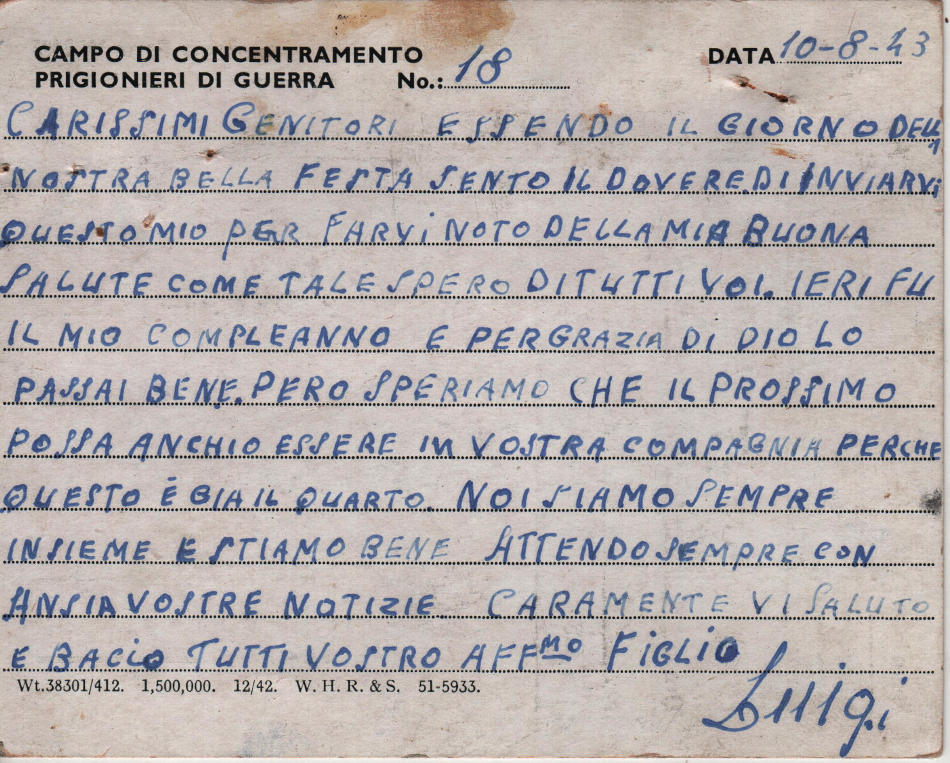 CAMPO DI CONCENTRAMENTO
PRIGIONIERI DI GUERRA No.: 18 DATA 10-8-43
CARISSIMI GENITORI ESSENDO IL GIORNO DELLA
NOSTRA BELLA FESTA SENTO IL DOVERE.DI INVIARVI
QUESTO MIO PER FARVI NOTO DELLA MIA BUONA
SALUTE COME TALE SPERO DI TUTTI VOI. IERI FU
IL MIO COMPLEANNO E PER GRAZIA DI DIO LO
PASSAI BENE. PERO SPERIAMO CHE IL PROSSIMO
POSSA ANCHIO ESSERE IN VOSTRA COMPAGNIA PERCHE
QUESTO È GIA IL QUARTO. NOI SIAMO SEMPRE
INSIEME E STIAMO BENE ATTENDO SEMPRE CON
ANSIA VOSTRE NOTIZIE CARAMENTE VI SALUTO
E BACIO TUTTI VOSTRO AFFMO FIGLIO
Wt.38301/412. 1,500,000. 12/42. W. H. R. & S. 51-5933.
Luigi